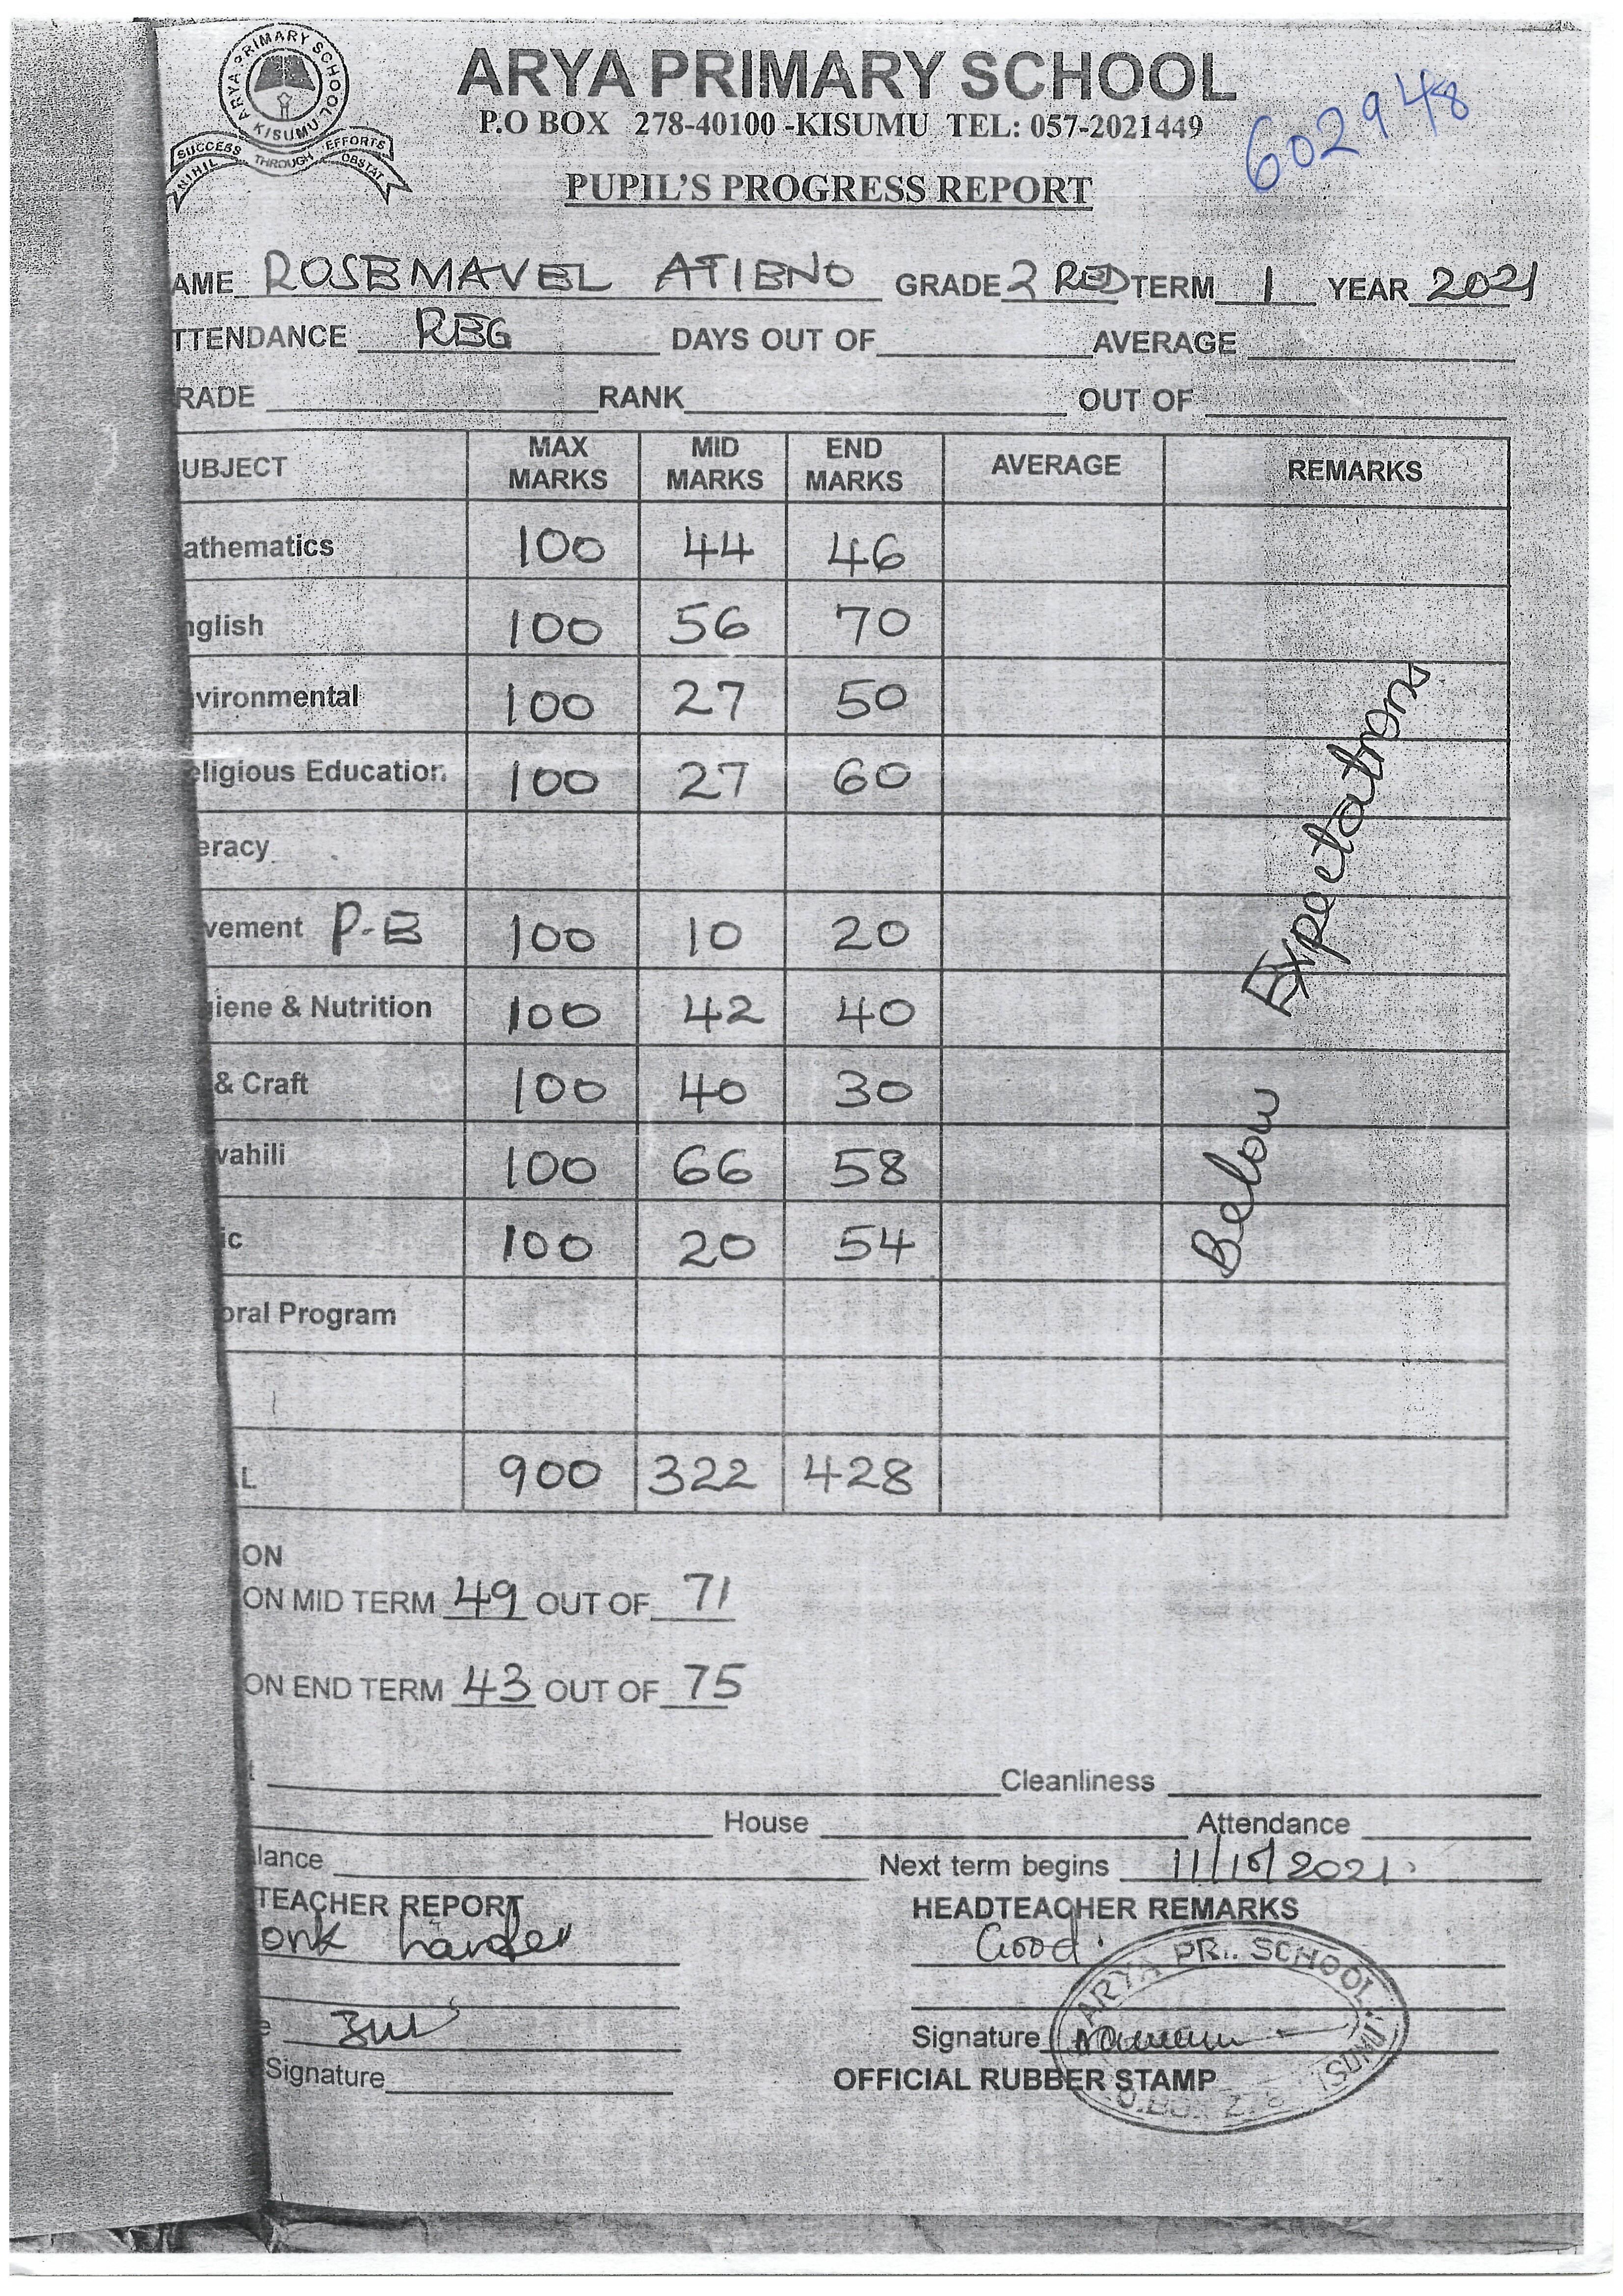 ARYA PRIMARY SCHOOL KISUMU
SUCCESS THROUGH EFFORTS
NIHIL OBSTAT
ARYA PRIMARY SCHOOL
P.O BOX 278-40100 -KISUMU TEL: 057-2021449
602948
PUPIL'S PROGRESS REPORT
AME ROSEMAVEL ATIENO GRADE 2 RED TERM 1 YEAR 2021
TTENDANCE REG DAYS OUT OF AVERAGE
RADE RANK OUT OF
UBJECT MAX MARKS MID MARKS END MARKS AVERAGE REMARKS
athematics 100 44 46
nglish 100 56 70
vironmental 100 27 50
eligious Education 100 27 60
eracy
vement P.E 100 10 20
giene & Nutrition 100 42 40
& Craft 100 40 30
wahili 100 66 58
ic 100 20 54
oral Program
Below Expectations
L 900 322 428
ON
ON MID TERM 49 OUT OF 71
ON END TERM 43 OUT OF 75
Cleanliness
House Attendance
lance Next term begins 11/10/2021.
TEACHER REPORT HEADTEACHER REMARKS
ork harder Good.
e Signature
Signature OFFICIAL RUBBER STAMP
ARYA PR.. SCHOOL